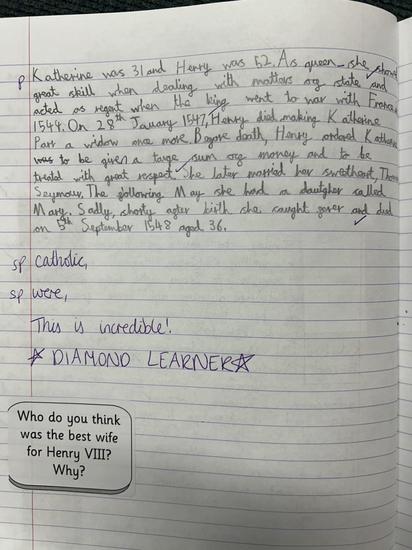 p Katherine was 31 and Henry was 52. As queen she showed
great skill when dealing with matters og state and
acted as regent when the king went to war with France
1544. On 28th January 1547, Henry died making Katherine
Parr a widow once more. Begore death, Henry ordered Katherine
was to be given a large sum og money and to be
treated with great respect. She later married her sweetheart, Thomas
Seymour. The gollowing May she had a daughter called
Mary. Sadly, shorty agter birth she caught gever and died
on 5th September 1548 aged 36.
sp catholic,
sp were,
This is incredible!
☆ DIAMOND LEARNER ☆
Who do you think
was the best wife
for Henry VIII?
Why?